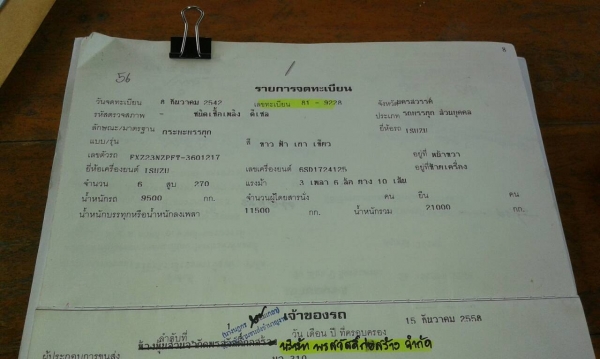 56
8
รายการจดทะเบียน
วันจดทะเบียน 8 ธันวาคม 2542 เลขทะเบียน 81 - 9228 จังหวัด นครสวรรค์
รหัสตรวจสภาพ - ชนิดเชื้อเพลิง ดีเซล ประเภท รถบรรทุก ส่วนบุคคล
ลักษณะ/มาตรฐาน กระบะบรรทุก ยี่ห้อรถ ISUZU
แบบ/รุ่น สี ขาว ฟ้า เทา เขียว
เลขตัวรถ FXZ23NZPFT-3601217 อยู่ที่ หน้าขวา
ยี่ห้อเครื่องยนต์ ISUZU เลขเครื่องยนต์ 6SD1724125 อยู่ที่ ซ้ายเครื่อง
จำนวน 6 สูบ 270 แรงม้า 3 เพลา 6 ล้อ ยาง 10 เส้น
น้ำหนักรถ 9500 กก. จำนวนผู้โดยสารนั่ง คน ยืน คน
น้ำหนักบรรทุกหรือน้ำหนักลงเพลา 11500 กก. น้ำหนักรวม 21000 กก.
เจ้าของรถ
ลำดับที่ วัน เดือน ปี ที่ครอบครอง 15 ธันวาคม 2558
ผู้ประกอบการขนส่ง บริษัท พรสวัสดิ์ก่อสร้าง จำกัด